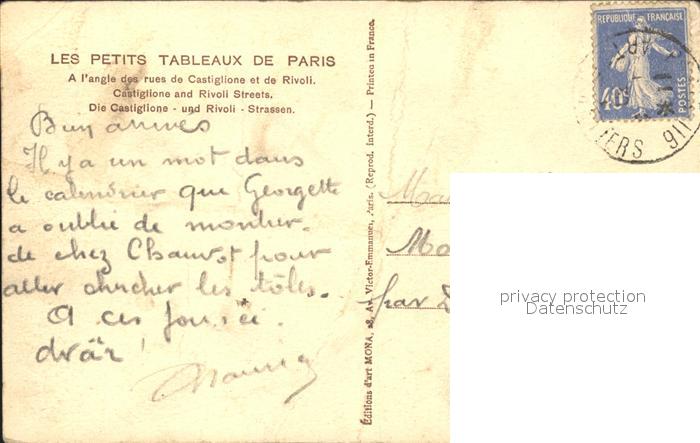 LES PETITS TABLEAUX DE PARIS
A l'angle des rues de Castiglione et de Rivoli.
Castiglione and Rivoli Streets.
Die Castiglione - und Rivoli - Strassen.
Il y a un mot dans
le calendrier que Georgette
a oublié de montrer.
de chez Chauvot pour
aller chercher les tôles.
A ces jours-ci.
Éditions d'art MONA, 28, Av. Victor-Emmanuel, Paris. (Reprod. Interd.) — Printed in France.
REPUBLIQUE FRANÇAISE
40c
POSTES
par
privacy protection
Datenschutz